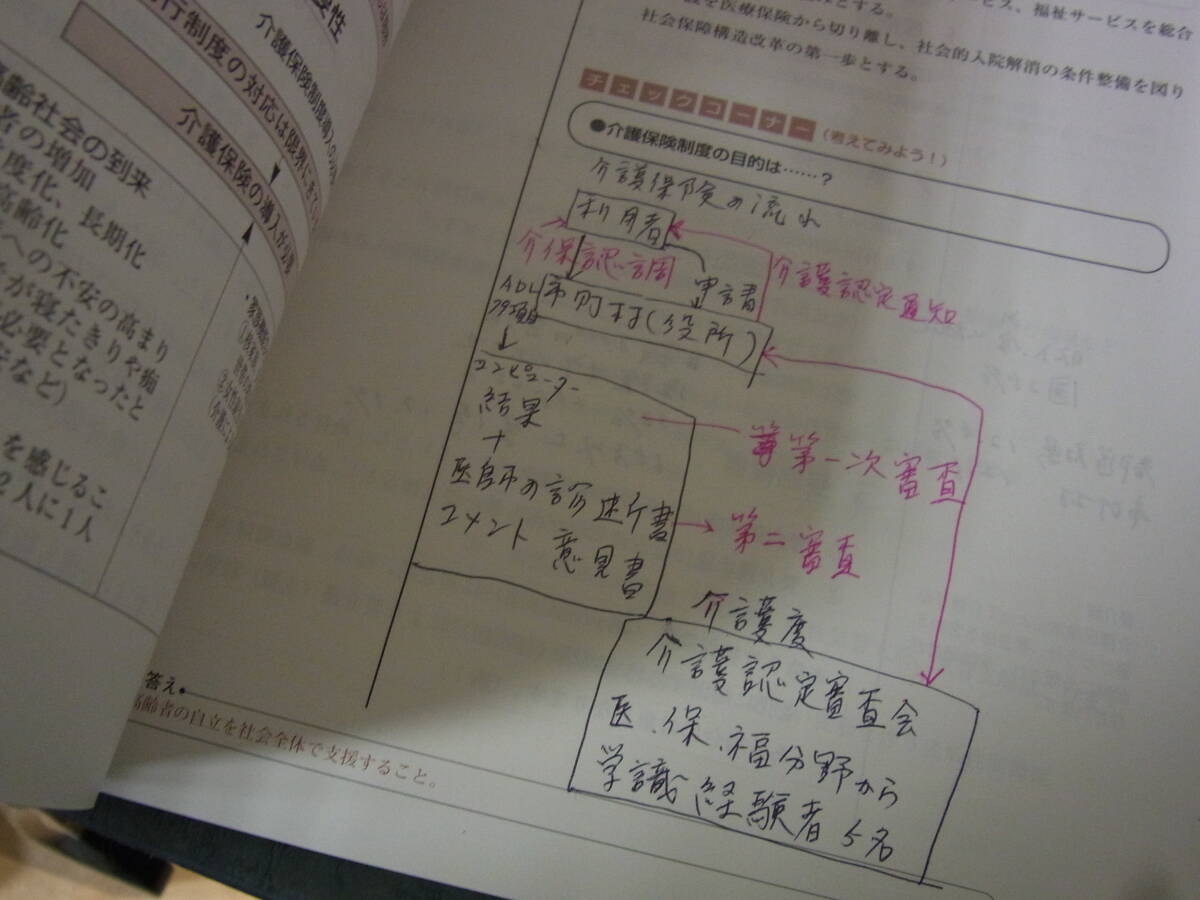 介護保険制度
行制度の対応は限界にきて
介護保険の導入が
齢社会の到来
者の増加
度化、長期化
高齢化
への不安の高まり
が寝たきりや痴
必要となったと
安など)
を感じるこ
2人に1人
ービス、福祉サービスを総合
とする。
を医療保険から切り離し、社会的入院解消の条件整備を図り
社会保障構造改革の第一歩とする。
チェックコーナー(考えてみよう!)
●介護保険制度の目的は……?
介護保険の流れ
利用者
介保認調
申請書
介護認定通知
ADL
79項目
市町村(役所)
コンピューター
結果
+
医師の診断書
コメント 意見書
第一次審査
第二審査
介護度
介護認定審査会
医、保、福分野から
学識経験者5名
答え
高齢者の自立を社会全体で支援すること。